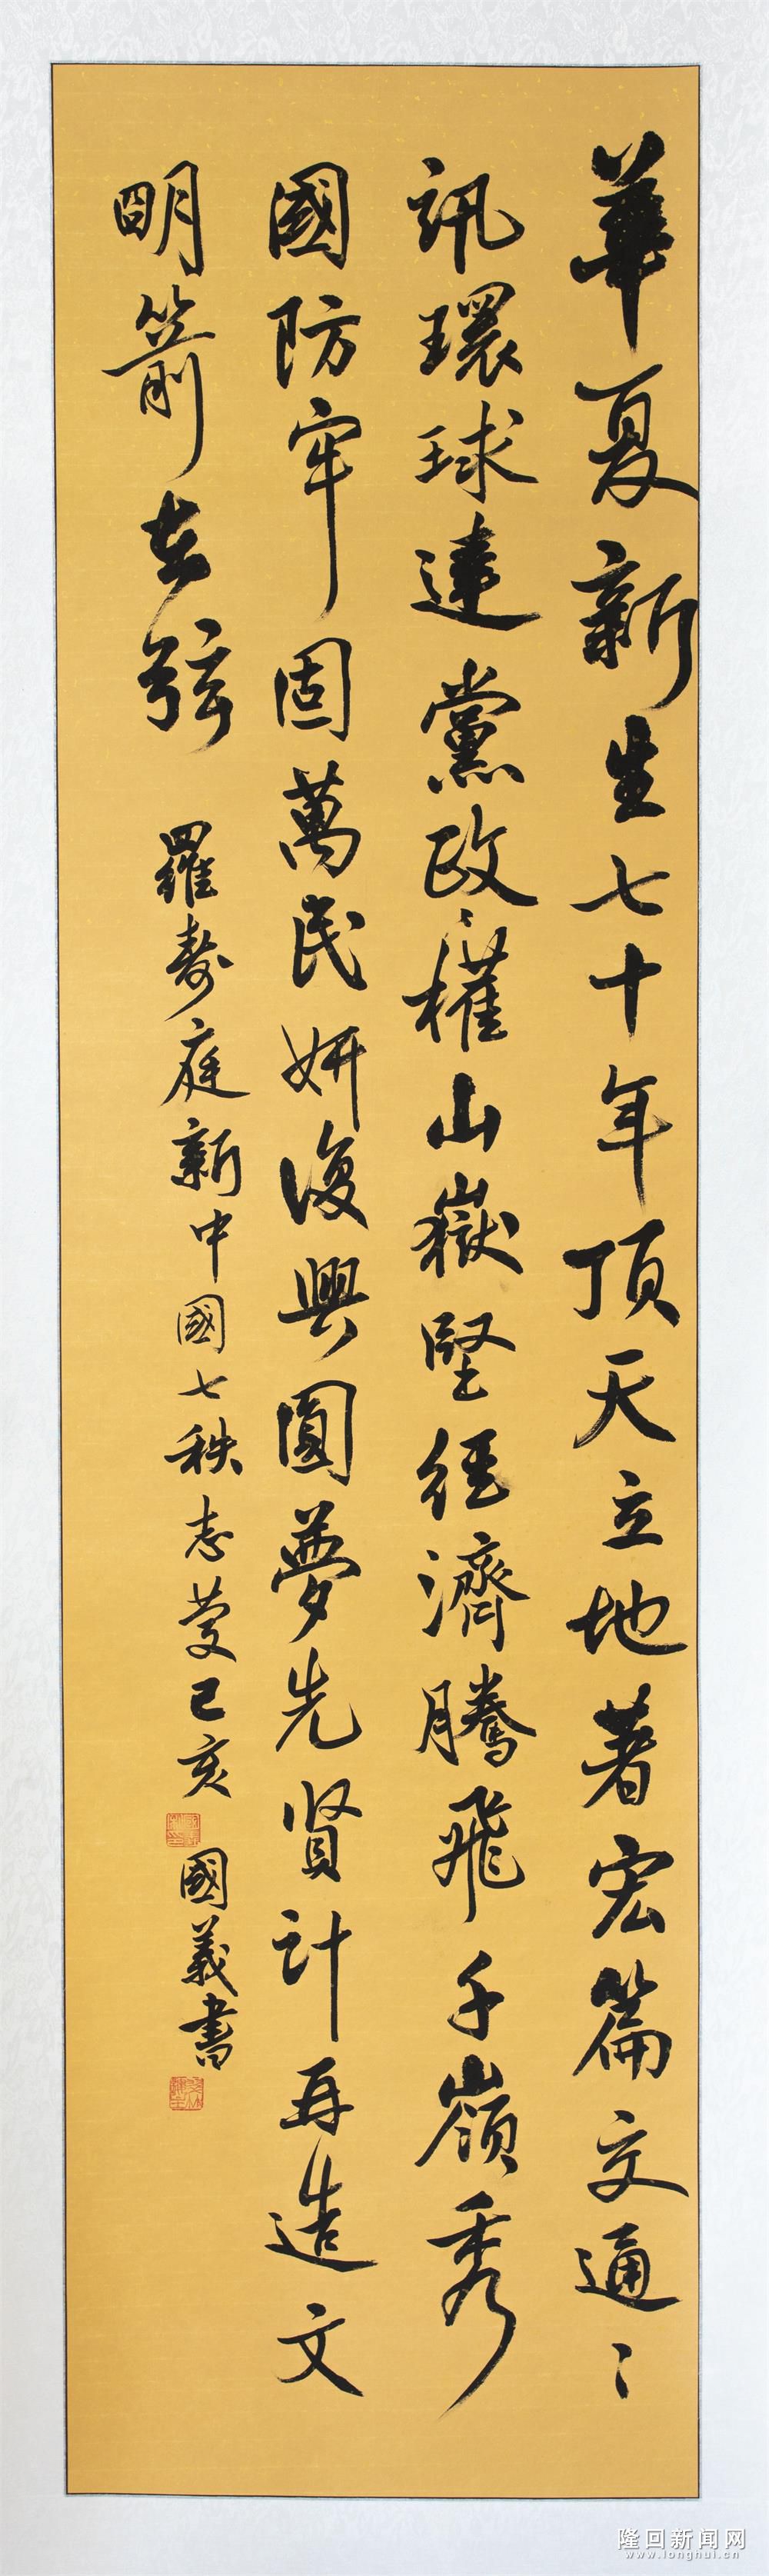 華夏新生七十年頂天立地著宏篇交通〻
訊環球達黨政〻權山嶽堅經濟騰飛千嶺秀
國防牢固萬民妍復興圓夢先賢計再造文
明箭在弦
羅壽庭新中國七秩志慶己亥
國義書
隆回新闻网
www.longhui.cn